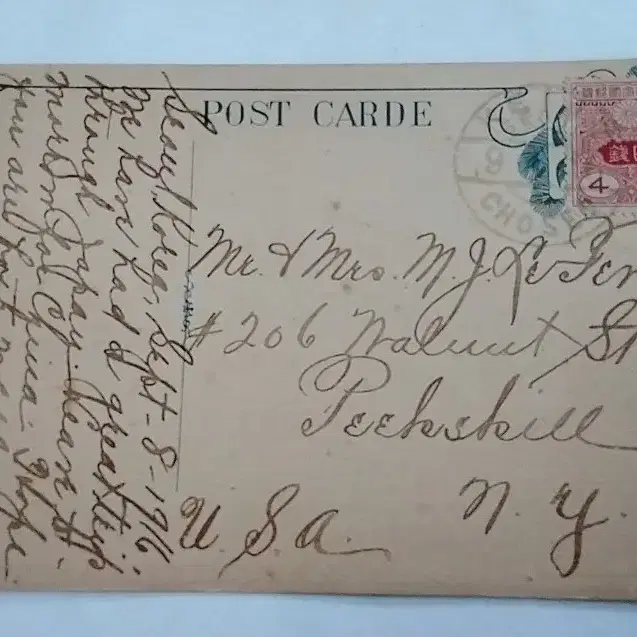 POST CARDE
CHOSEN
9
4
Mr. & Mrs. M. J. Le
#206 Walnut St
Peekskill
N. Y.
U. S. A.
Seoul Korea, Sept-8-1916
We have had a great trip
through Japan. Leave to-
morrow for China. I hope
you are